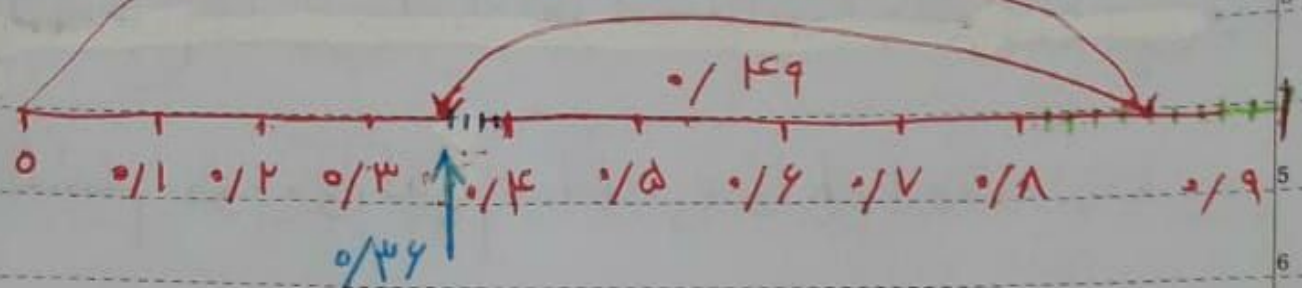 ۰/۴۹
۰ ۰/۱ ۰/۲ ۰/۳ ۰/۴ ۰/۵ ۰/۶ ۰/۷ ۰/۸ ۰/۹ 5
۰/۳۶
6